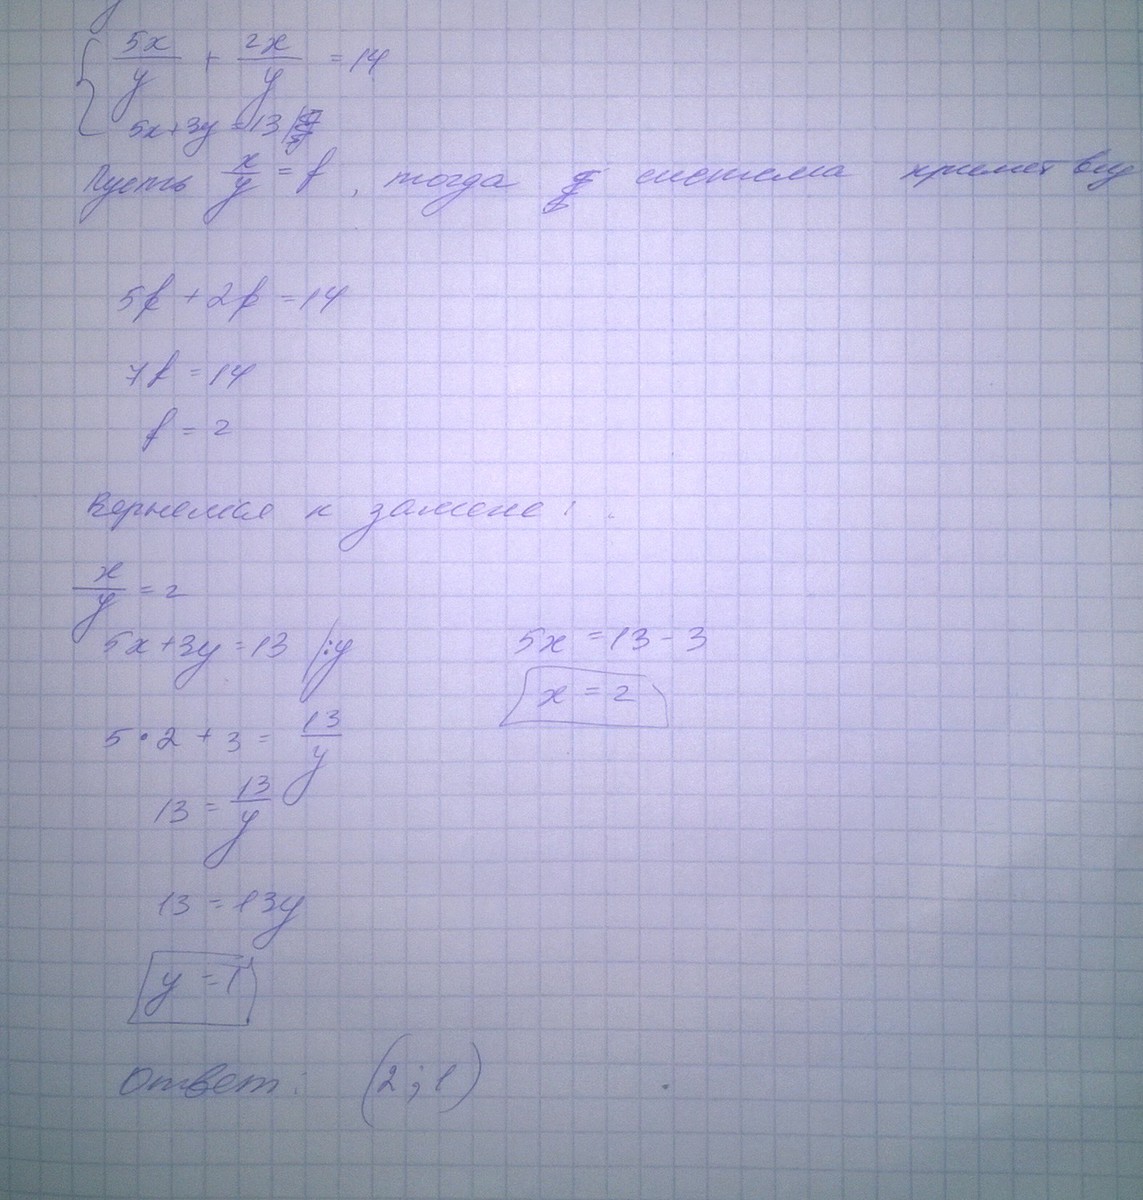 5x/y + 2x/y = 14
5x+3y = 13
Пусть x/y = f, тогда система примет вид
5f + 2f = 14
7f = 14
f = 2
Вернемся к замене:
x/y = 2
5x+3y = 13 |:y
5•2 + 3 = 13/y
13 = 13/y
13 = 13y
y = 1
5x = 13 - 3
x = 2
Ответ: (2;1)